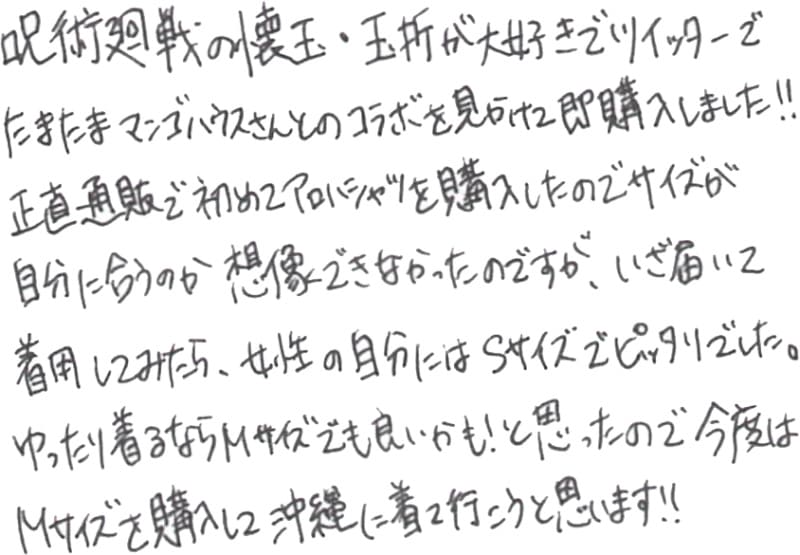 呪術廻戦の懐玉・玉折が大好きでツイッターで
たまたまマンゴハウスさんとのコラボを見かけて即購入しました!!
正直通販で初めてアロハシャツを購入したのでサイズが
自分に合うのか想像できなかったのですが、いざ届いて
着用してみたら、女性の自分にはSサイズでピッタリでした。
ゆったり着るならMサイズでも良いかも!と思ったので今度は
Mサイズを購入して沖縄に着て行こうと思います!!